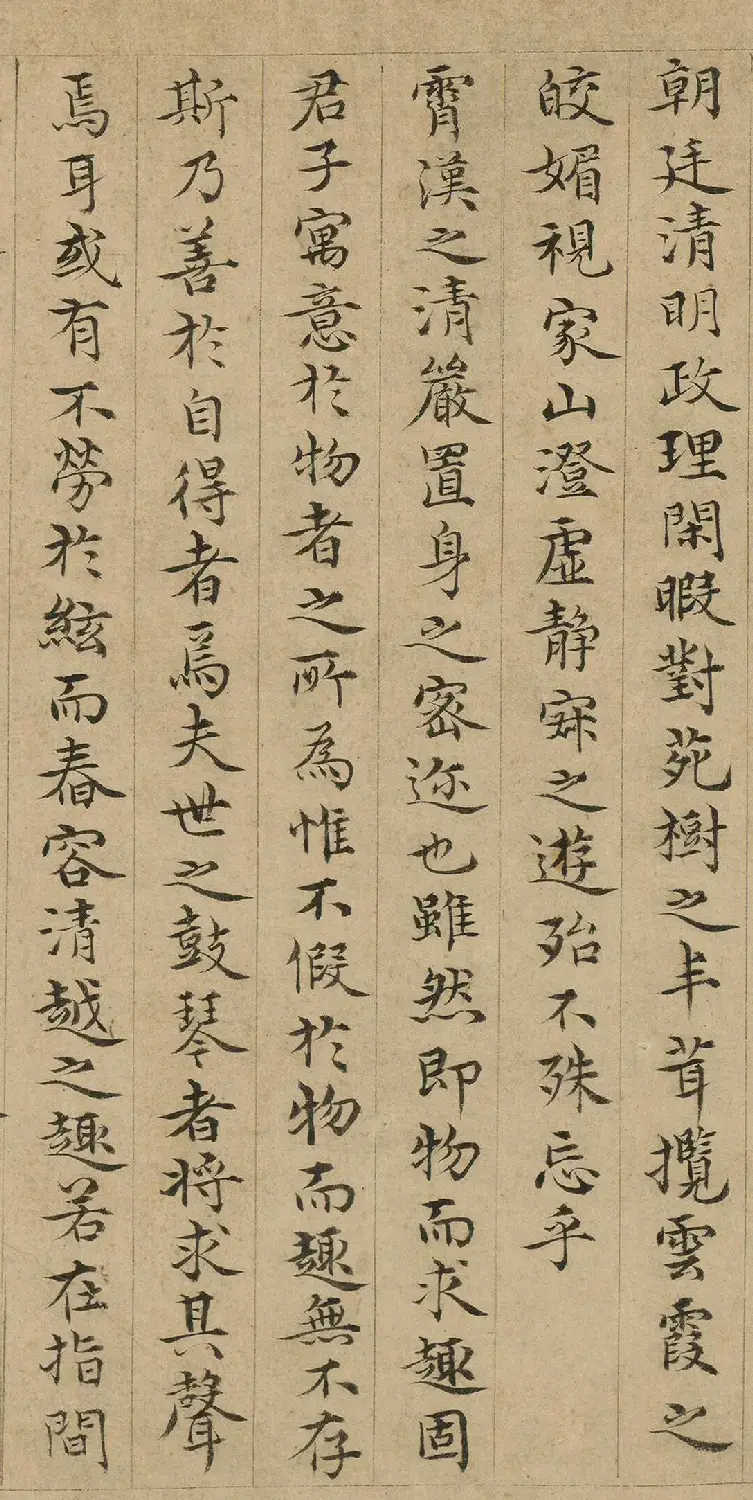 朝廷清明政理閑暇對苑樹之丰茸攬雲霞之
皎媚視家山澄虛静寐之遊殆不殊忘乎
霄漢之清嚴置身之密迩也雖然即物而求趣固
君子寓意於物者之所為惟不假於物而趣無不存
斯乃善於自得者焉夫世之鼓琴者將求其聲
焉耳或有不勞於絃而舂容清越之趣若在指間